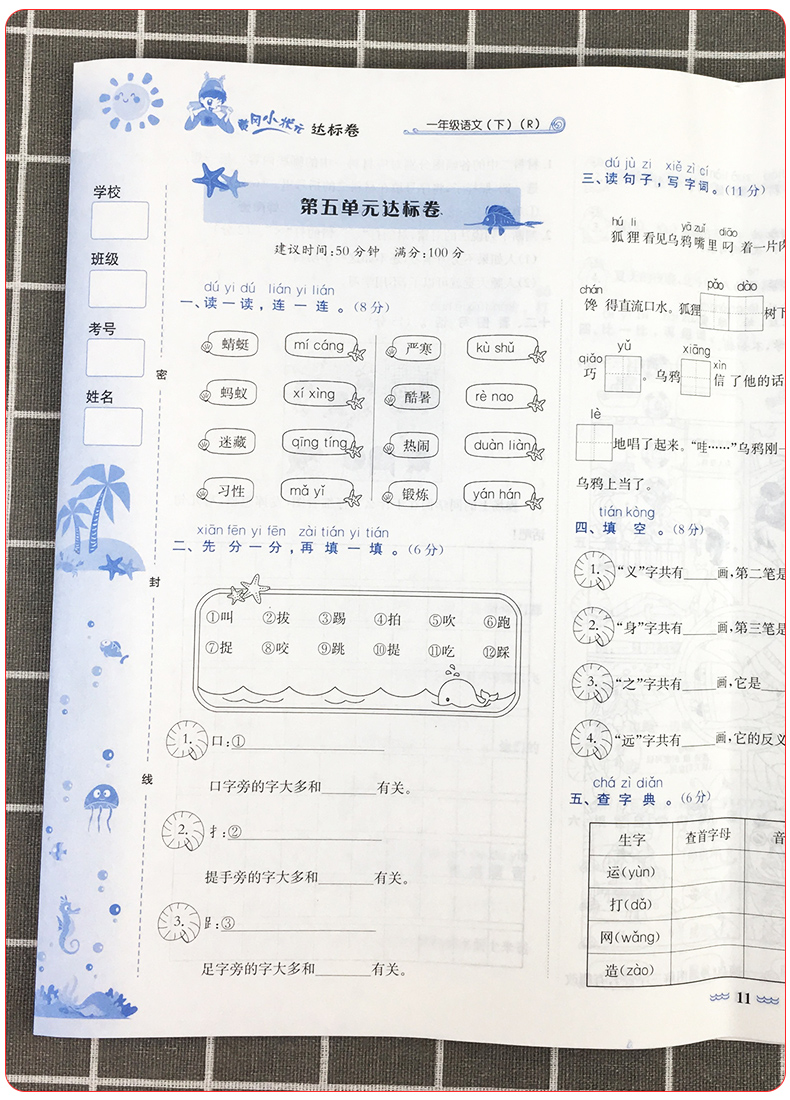 黄冈小状元 达标卷
一年级语文(下)(R)
学校
班级
考号
姓名
密
封
线
第五单元达标卷
建议时间:50分钟 满分:100分
dú yi dú lián yi lián
一、读一读,连一连。(8分)
蜻蜓 mí cáng 严寒 kù shǔ
蚂蚁 xí xìng 酷暑 rè nao
迷藏 qīng tíng 热闹 duàn liàn
习性 mǎ yǐ 锻炼 yán hán
xiān fēn yi fēn zài tián yi tián
二、先分一分,再填一填。(6分)
①叫 ②拔 ③踢 ④拍 ⑤吹 ⑥跑
⑦捉 ⑧咬 ⑨跳 ⑩提 ⑪吃 ⑫踩
1. 口:①
口字旁的字大多和______有关。
2. 扌:②
提手旁的字大多和______有关。
3. ⻊:③
足字旁的字大多和______有关。
dú jù zi xiě zì cí
三、读句子,写字词。(11分)
hú li yā zuǐ diāo
狐狸看见乌鸦嘴里叼着一片肉
chán pāo dào
馋得直流口水。狐狸 树下
qiǎo yǔ xiāng xìn
巧 。乌鸦 信了他的话
lè
地唱了起来。“哇……”乌鸦刚一
乌鸦上当了。
tián kòng
四、填空。(8分)
1. “义”字共有____画,第二笔是
2. “身”字共有____画,第三笔是
3. “之”字共有____画,它是
4. “远”字共有____画,它的反义
chá zì diǎn
五、查字典。(6分)
生字 查首字母 音
运(yùn)
打(dǎ)
网(wǎng)
造(zào)
11